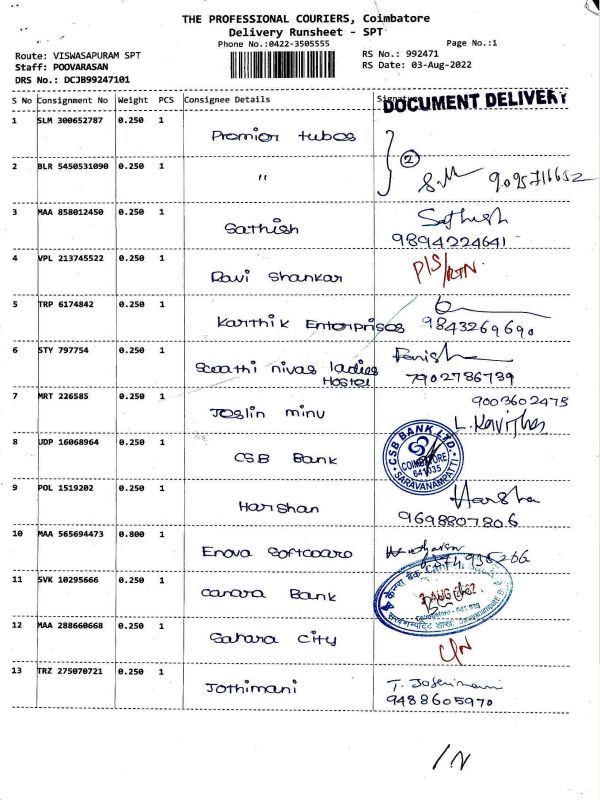 THE PROFESSIONAL COURIERS, Coimbatore
Delivery Runsheet - SPT
Phone No.:0422-3505555
Page No.:1
Route: VISWASAPURAM SPT
RS No.: 992471
Staff: POOVARASAN
RS Date: 03-Aug-2022
DRS No.: DCJB99247101
S No Consignment No Weight PCS Consignee Details
DOCUMENT DELIVERY
1 SLM 300652787 0.250 1 Promior tubos
2 BLR 5450531090 0.250 1 "
2
9095711652
3 MAA 858012450 0.250 1 Sathish Sathish
9894224641
4 VPL 213745522 0.250 1 Ravi Shankar P/S/RTN
5 TRP 6174842 0.250 1 Karthik Enterprises 9843269690
6 STY 797754 0.250 1 Swathi nivas ladies
Hostel
7902786739
7 MRT 226585 0.250 1 Joslin minu 9003602475
L. Kavitha
8 UDP 16068964 0.250 1 CSB Bank
CSB BANK LTD.
COIMBATORE
641035
SARAVANAMPATTI
9 POL 1519202 0.250 1 Harshan Harsha
9698807806
10 MAA 565694473 0.800 1 Enova Softwaro
11 SVK 10295666 0.250 1 canara Bank
12 MAA 288660668 0.250 1 Sahara City C/N
13 TRZ 275070721 0.250 1 Jothimani
9488605970
/N